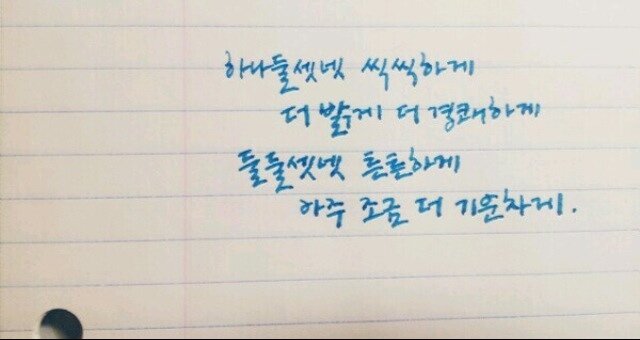 하나둘셋넷 씩씩하게
더 밝게 더 경쾌하게
둘둘셋넷 튼튼하게
아주 조금 더 기운차게.